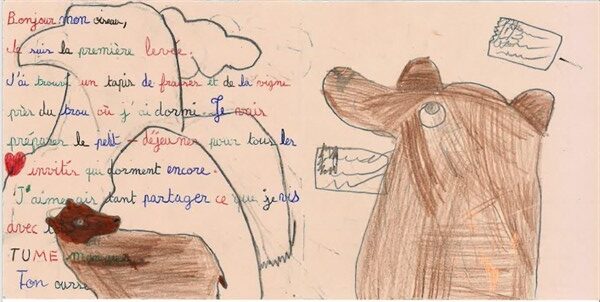 Bonjour mon oiseau,
Je suis la première levée.
J'ai trouvé un tapis de fraises et de la vigne
près du trou où j'ai dormi. Je vais
préparer le petit-déjeuner pour tous les
invités qui dorment encore.
J'aimerais tant partager ce que je vis
avec
TU ME manques
Ton ourse